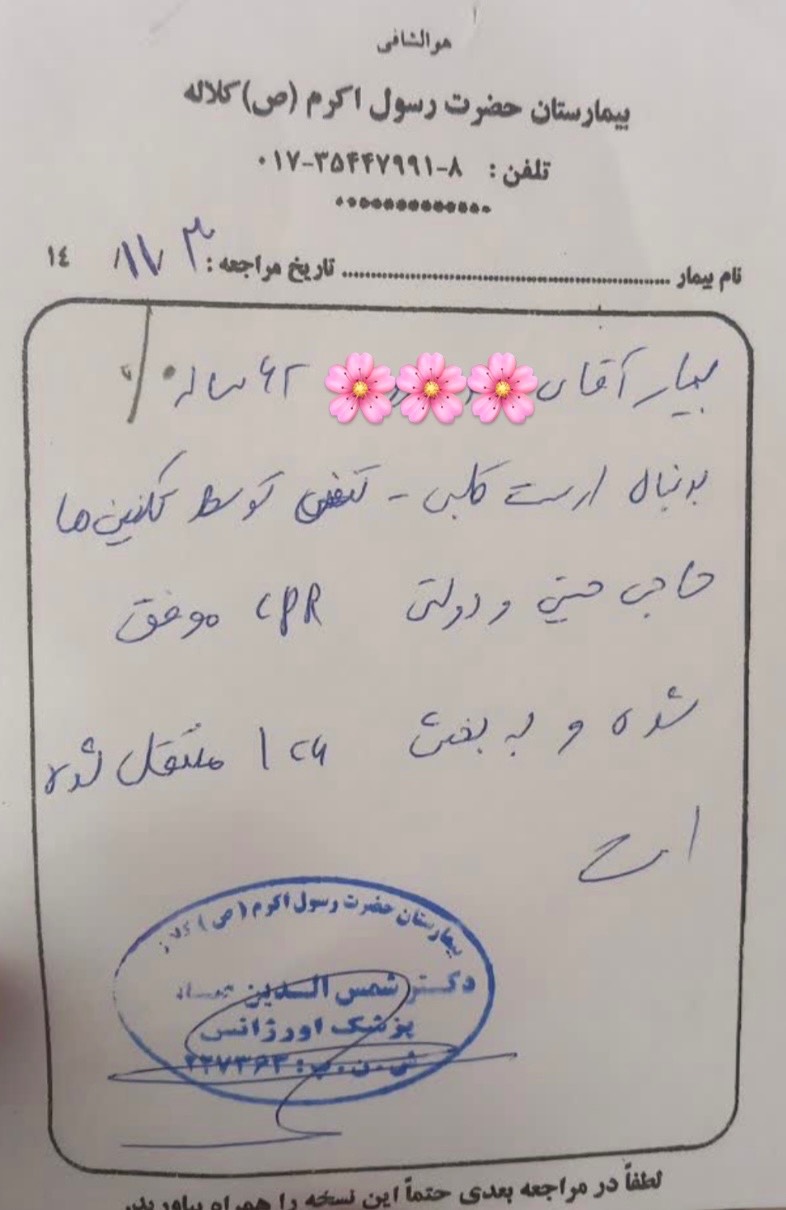 هوالشافی
بیمارستان حضرت رسول اکرم (ص) کلاله
تلفن : ۸-۰۱۷-۳۵۴۴۷۹۹۱
نام بیمار ........ تاریخ مراجعه : ۱۴
بیمار آقای ۶۲ ساله
بدنبال ارست قلبی - تنفسی توسط تکنسین ها
حاجی حسینی و دولتی CPR موفق
شده و به بخش ICU منتقل شده
است
بیمارستان حضرت رسول اکرم (ص) کلاله
دکتر شمس الدین
پزشک اورژانس
ش.ن.پ:
لطفاً در مراجعه بعدی حتماً این نسخه را همراه بیاورید.